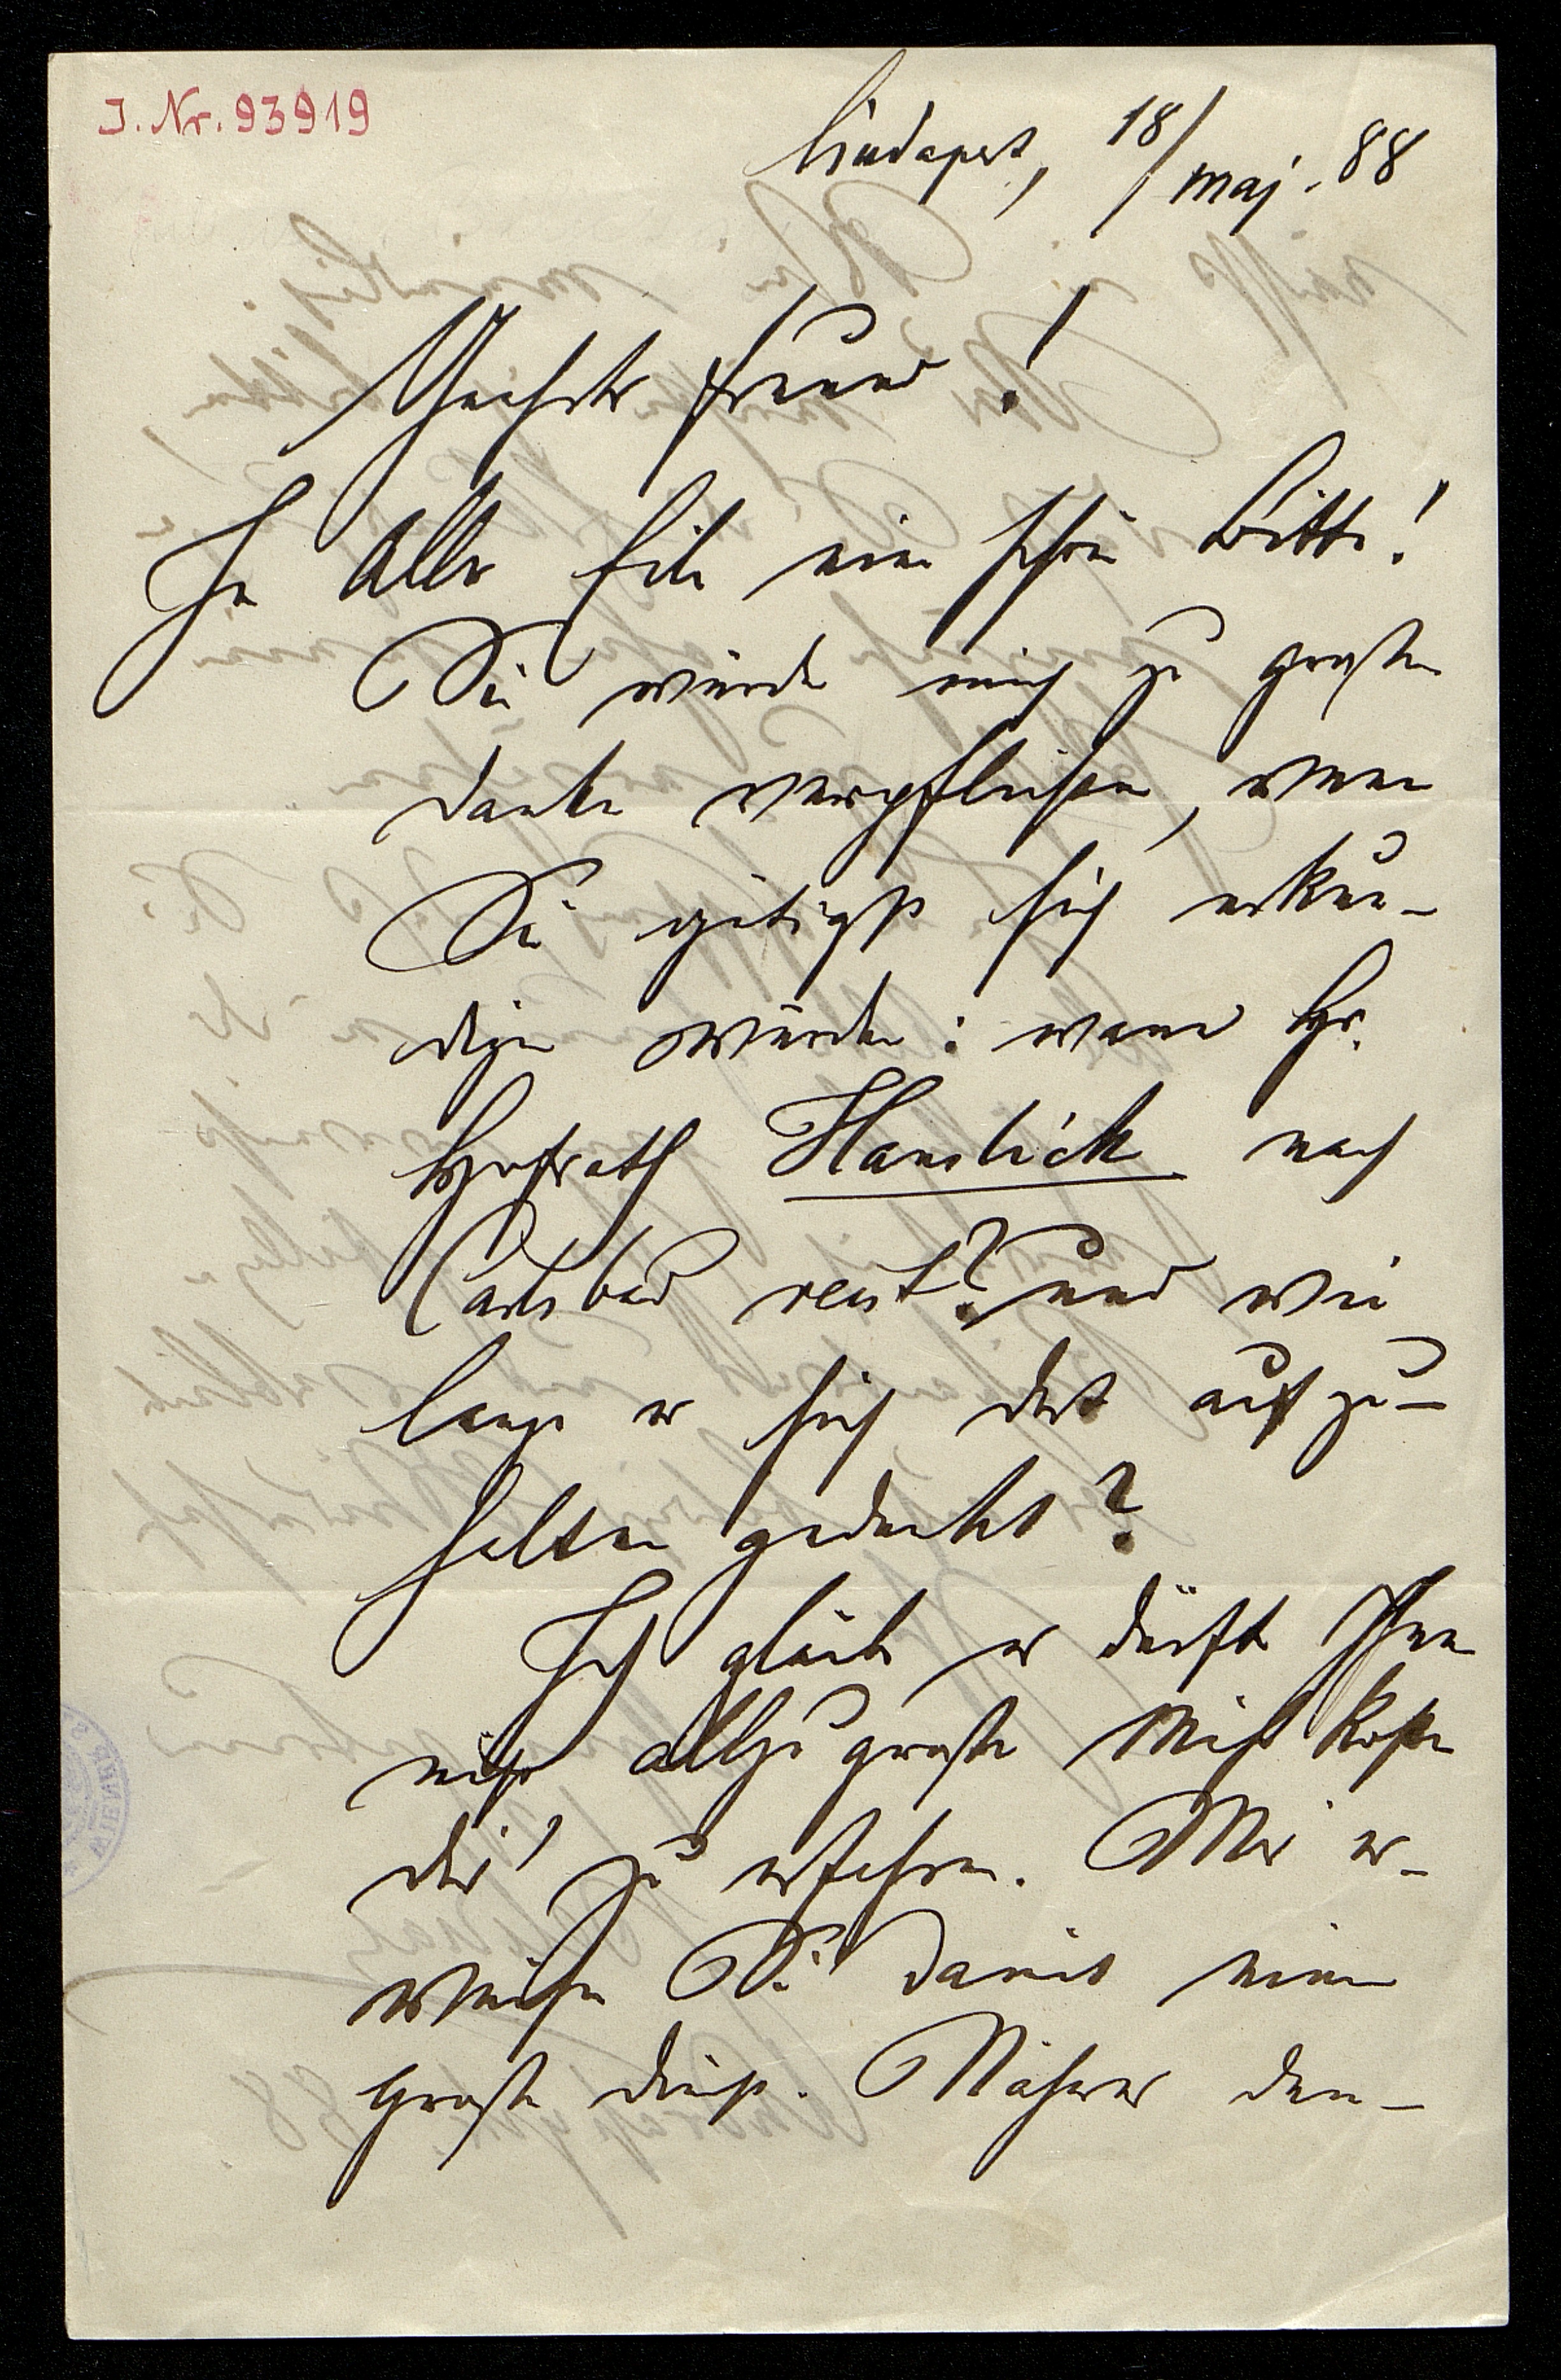 J. Nr. 93919
Budapest, 18/maj. 88
Verehrter Freund!
In aller Eile eine schöne Bitte!
Sie würden mich zu großem
Danke verpflichten, wenn
Sie gütigst sich erkun-
digen würden: wann Hr.
Hofrath Hanslick nach
Carlsbad reist? und wie
lange er sich dort aufzu-
halten gedenkt?
Ich glaube es dürfte Ihnen
nicht allzu große Müh kosten
dies zu erfahren. Mir er-
weisen Sie damit einen
großen Dienst. Näheres dem-